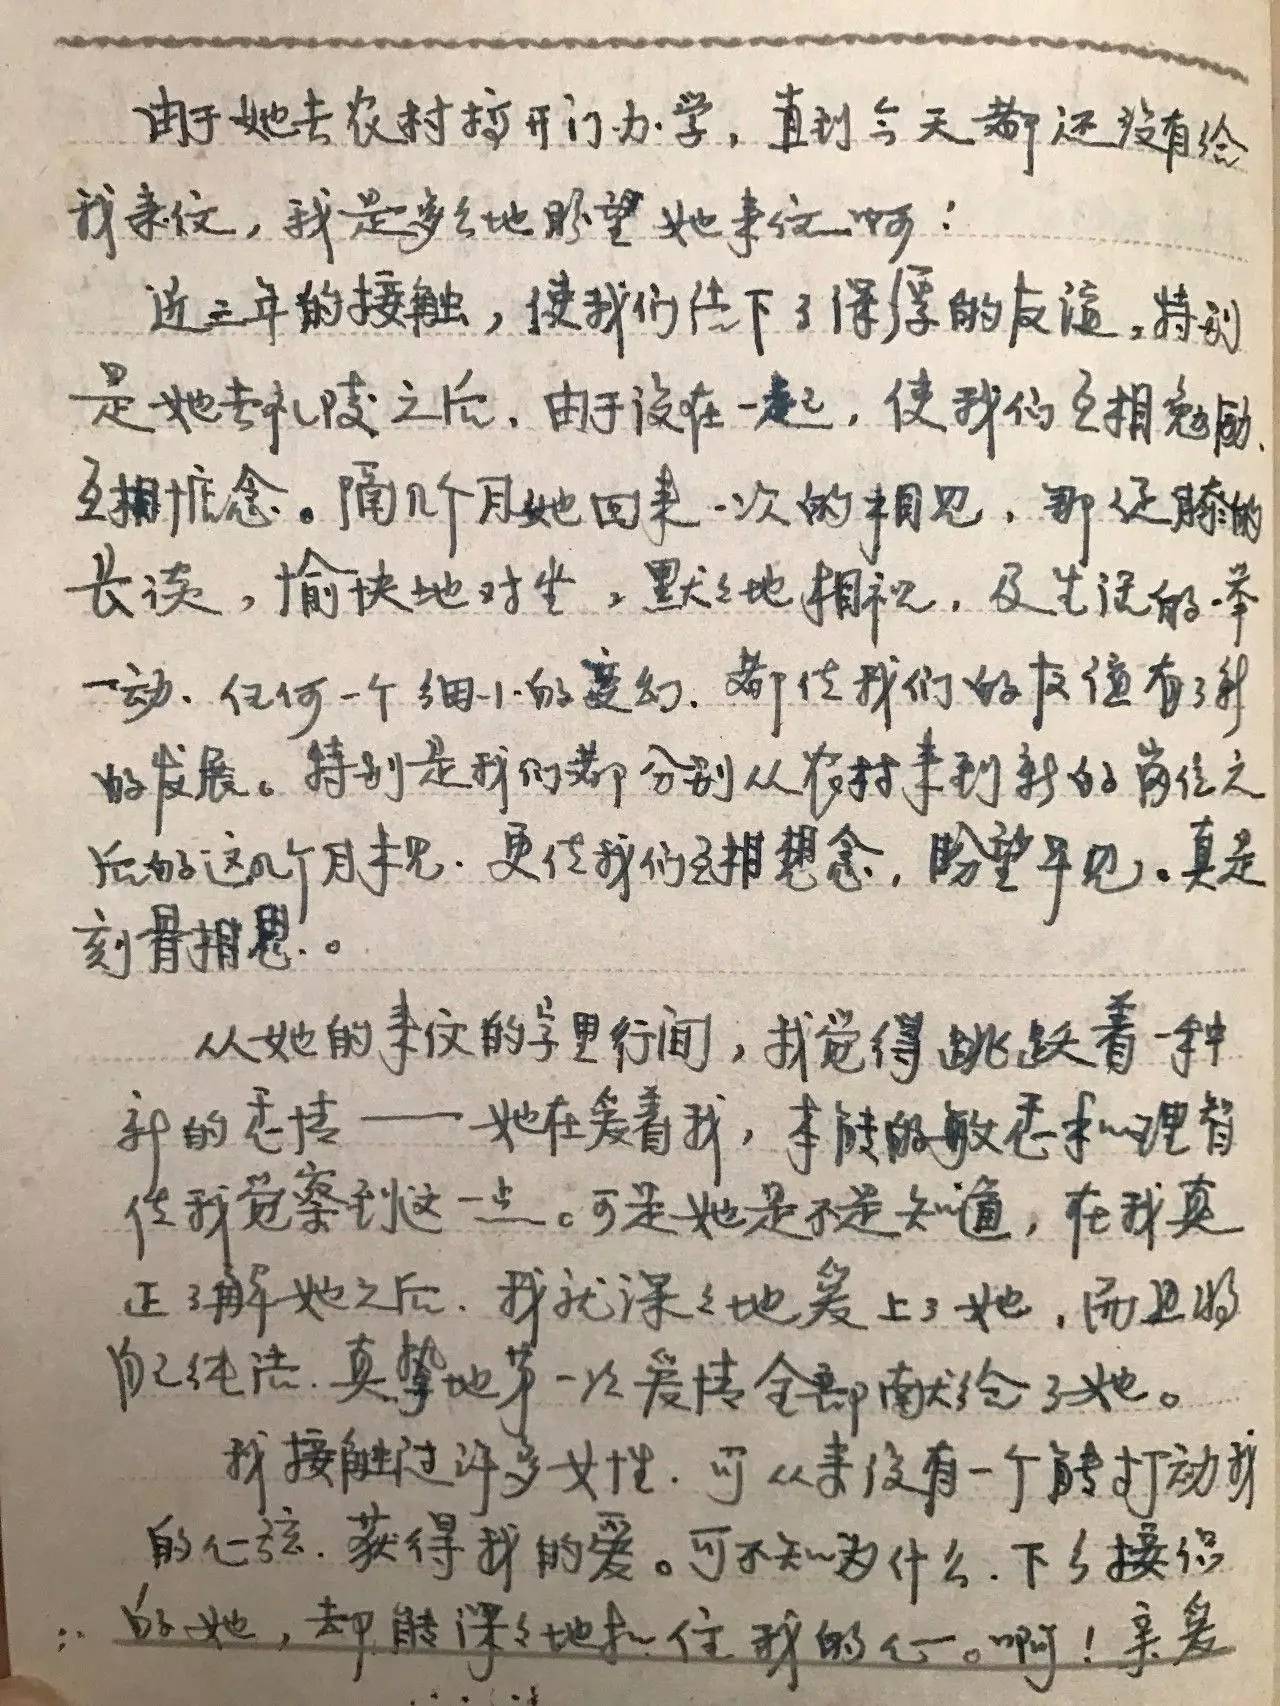 由于她去农村搞开门办学，直到今天都还没有给
我来信，我是多么地盼望她来信啊！
近三年的接触，使我们结下了深厚的友谊，特别
是她去礼陵之后，由于没在一起，使我们互相勉励、
互相惦念。隔几个月她回来一次的相见，那促膝的
长谈，愉快地对坐，默々地相视，及生活的一举
一动，任何一个细小的变幻，都使我们的友谊有了新
的发展。特别是我们都分别从农村来到新的岗位之
后的这几个月未见，更使我们互相想念，盼望早见。真是
刻骨相思。
从她的来信的字里行间，我觉得跳跃着一种
新的感情——她在爱着我，本能的敏感和心理智
使我觉察到这一点。可是她是不是知道，在我真
正了解她之后，我就深々地爱上了她，而且将
自己纯洁、真挚地第一次爱情全部献给了她。
我接触过许多女性，可从来没有一个能打动我
的心弦，获得我的爱。可不知为什么，下乡接识
的她，却能深々地扣住我的心。啊！亲爱